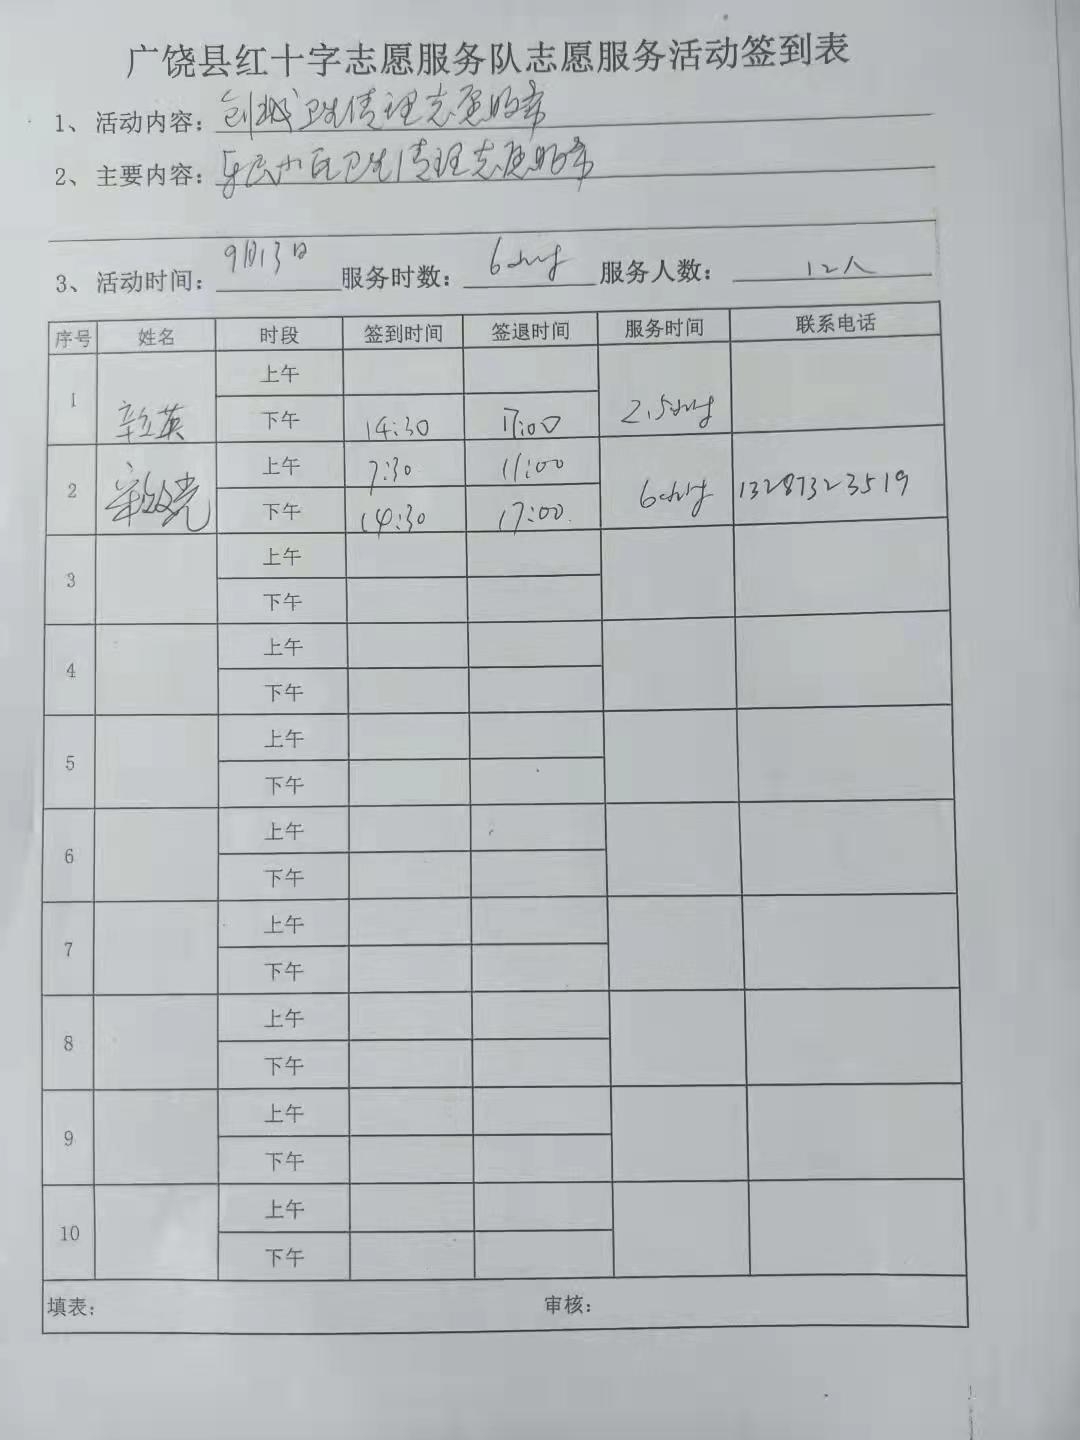 广饶县红十字志愿服务队志愿服务活动签到表
1、活动内容：创城卫生清理志愿服务
2、主要内容：乐民小区卫生清理志愿服务
3、活动时间：9月13日 服务时数：6小时 服务人数：12人
序号 姓名 时段 签到时间 签退时间 服务时间 联系电话
1 上午
辛立英 下午 14:30 17:00 2.5小时
2 上午 7:30 11:00 6小时 13287323519
下午 14:30 17:00
3 上午
下午
4 上午
下午
5 上午
下午
6 上午
下午
7 上午
下午
8 上午
下午
9 上午
下午
10 上午
下午
填表： 审核：